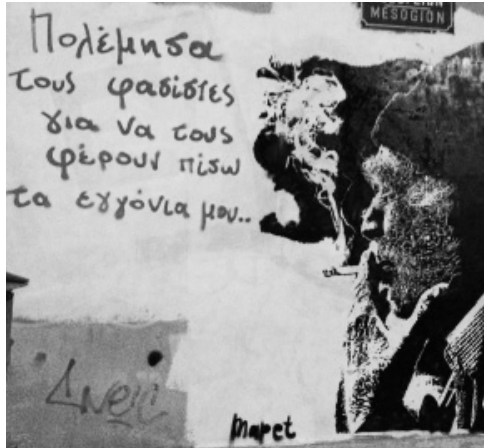 MESOGION
Πολέμησα
τους φασίστες
για να τους
φέρουν πίσω
τα εγγόνια μου..
mapet